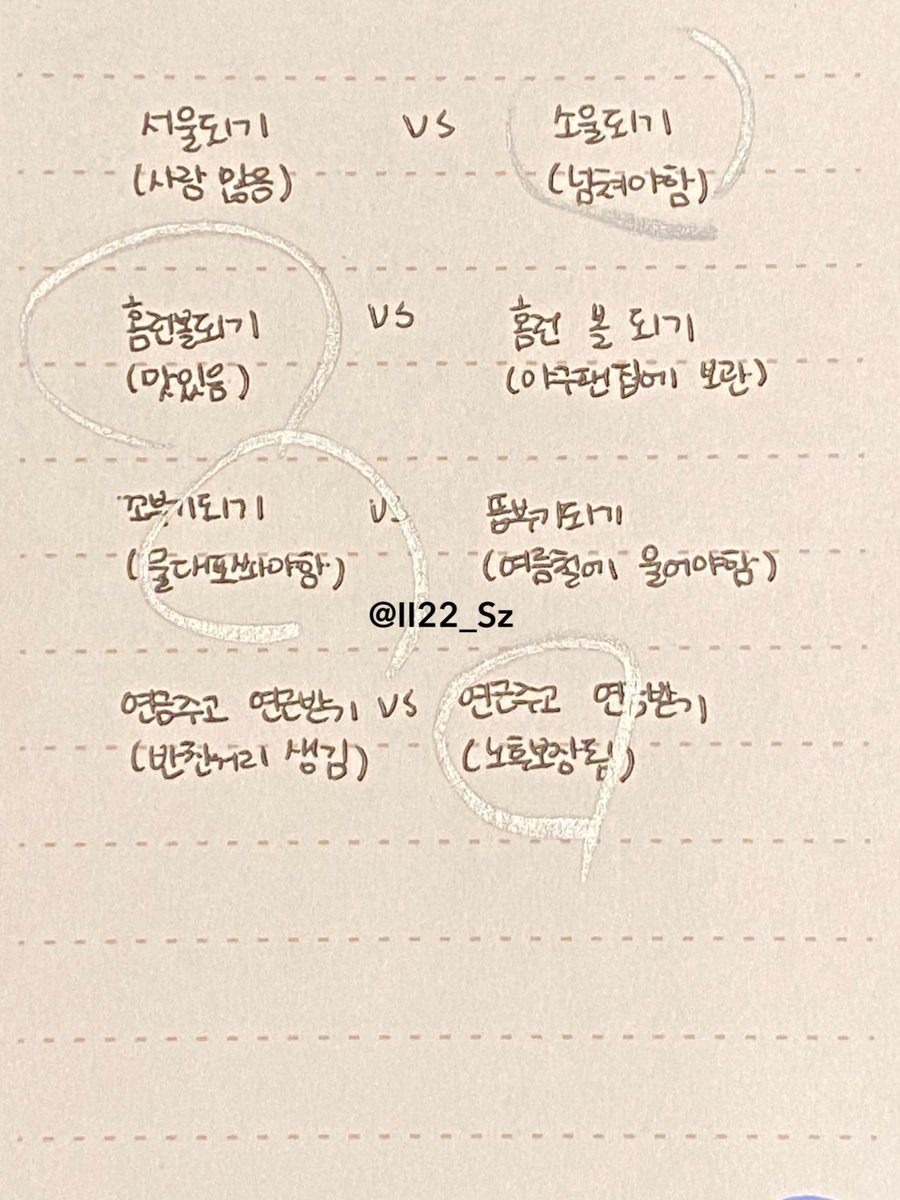 서울되기 vs 소울되기
(사람 많음) (넘쳐야함)
홈런볼되기 vs 홈런 볼 되기
(맛있음) (야구팬집에 보관)
꼬부기되기 vs 뜸부기되기
(물대포쏴야함) (여름철에 울어야함)
@ll22_Sz
연금주고 연근받기 vs 연근주고 연금받기
(반찬거리 생김) (노후보장됨)